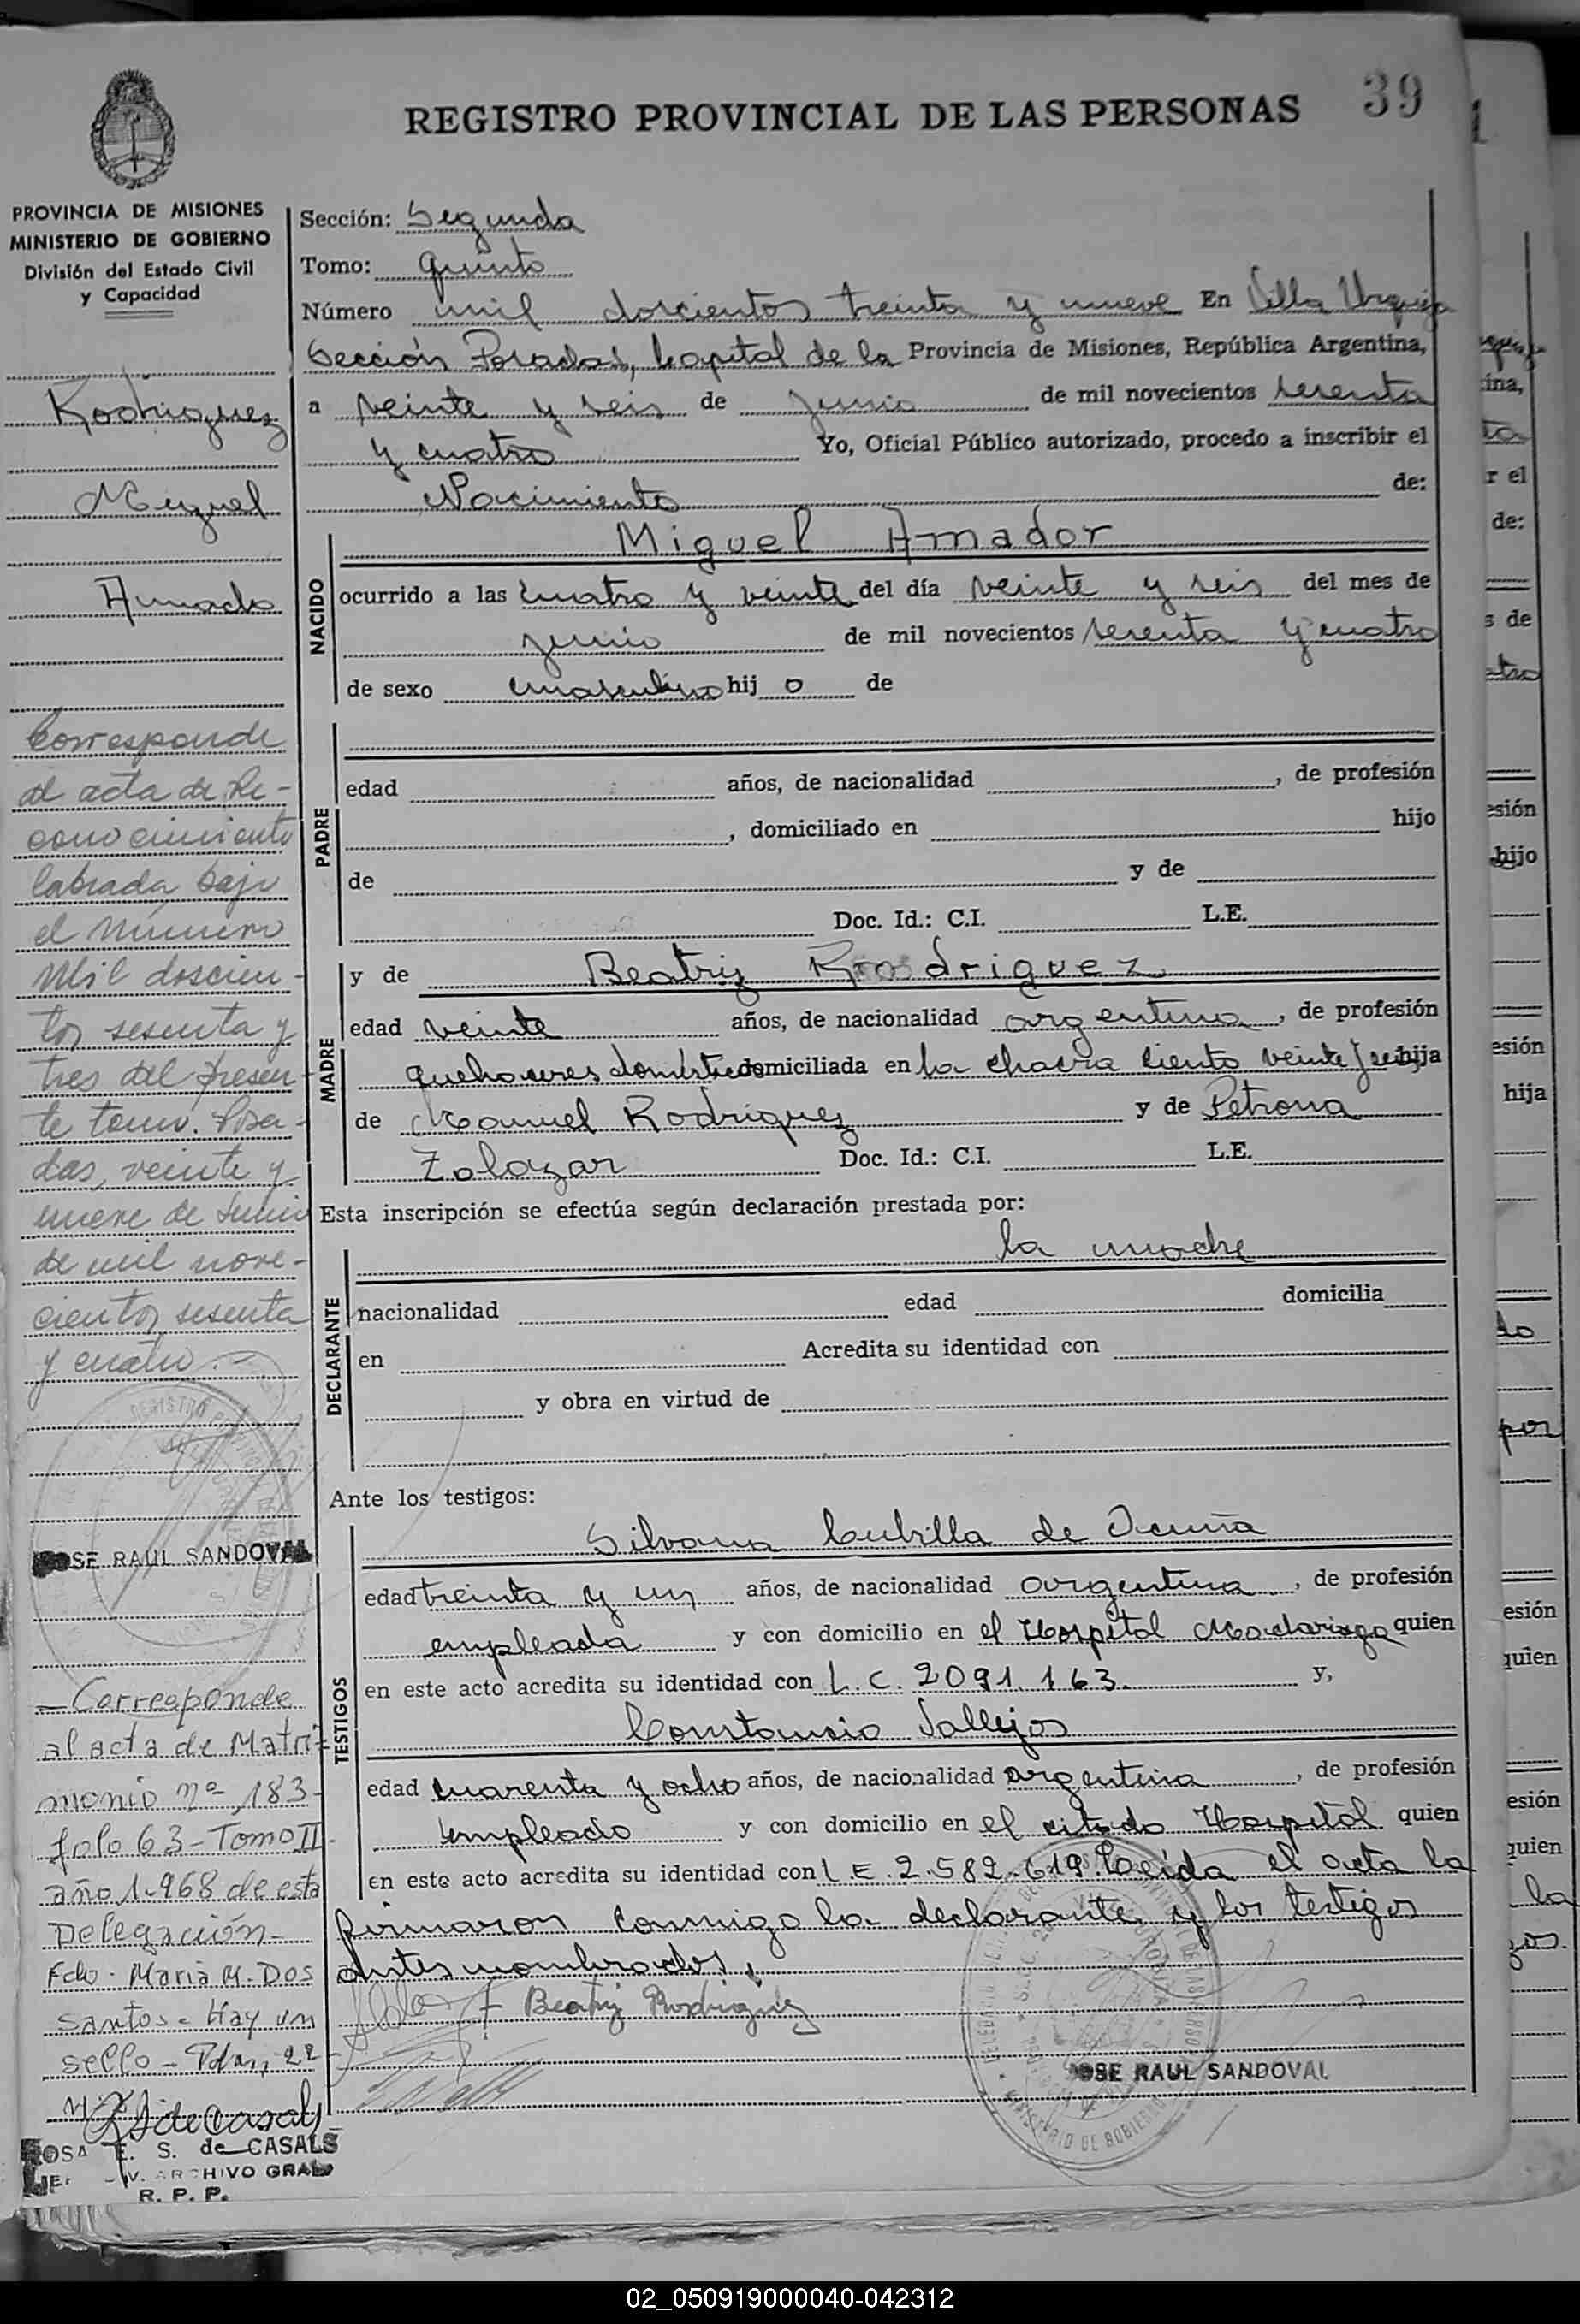 39
REGISTRO PROVINCIAL DE LAS PERSONAS
PROVINCIA DE MISIONES
MINISTERIO DE GOBIERNO
División del Estado Civil
y Capacidad
Rodriguez
Miguel
Amado
Corresponde
al acta de Re-
conocimiento
labrada bajo
el número
Mil doscien-
tos sesenta y
tres del presen-
te tomo. Posa-
das, veinte y
nueve de Junio
de mil nove-
cientos sesenta
y cuatro.-
JOSE RAUL SANDOVAL
- Corresponde
al acta de Matri-
monio nº 183-
folo 63- Tomo II-
año 1.968 de esta
Delegación-
Fdo. Maria M. Dos
Santos- Hay un
sello- Pdas, 22
ROSA E. S. de CASALS
ARCHIVO GRAL
R. P. P.
Sección: Segunda
Tomo: quinto
Número mil doscientos treinta y nueve En Villa Urquiza
Sección Posadas, Capital de la Provincia de Misiones, República Argentina,
a veinte y seis de junio de mil novecientos sesenta
y cuatro Yo, Oficial Público autorizado, procedo a inscribir el
Nacimiento de:
NACIDO
Miguel Amador
ocurrido a las cuatro y veinte del día veinte y seis del mes de
junio de mil novecientos sesenta y cuatro
de sexo masculino hij o de
PADRE
edad años, de nacionalidad , de profesión
, domiciliado en hijo
de y de
Doc. Id.: C.I. L.E.
MADRE
y de Beatriz Rodriguez
edad veinte años, de nacionalidad argentina , de profesión
quehaceres domésticos domiciliada en la chacra ciento veinte y seis hija
de Manuel Rodriguez y de Petrona
Zalazar Doc. Id.: C.I. L.E.
Esta inscripción se efectúa según declaración prestada por:
DECLARANTE
la madre
nacionalidad edad domicilia
en Acredita su identidad con
y obra en virtud de
Ante los testigos:
TESTIGOS
Silvana Cubilla de Acuña
edad treinta y un años, de nacionalidad argentina , de profesión
empleada y con domicilio en el Hospital Madariaga quien
en este acto acredita su identidad con L.C. 2091.163. y,
Constancio Vallejos
edad cuarenta y ocho años, de nacionalidad argentina , de profesión
empleado y con domicilio en el citado Hospital quien
en este acto acredita su identidad con L.E. 2.582.619. Leída el acta la
firmaron conmigo la declarante y los testigos
antes nombrados.
Beatriz Rodriguez
JOSE RAUL SANDOVAL
02_050919000040-042312